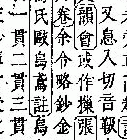 又息入切音
韻會或作張
卷余今略鈔金
氏歐烏鳶註烏
一貫二貫三貫